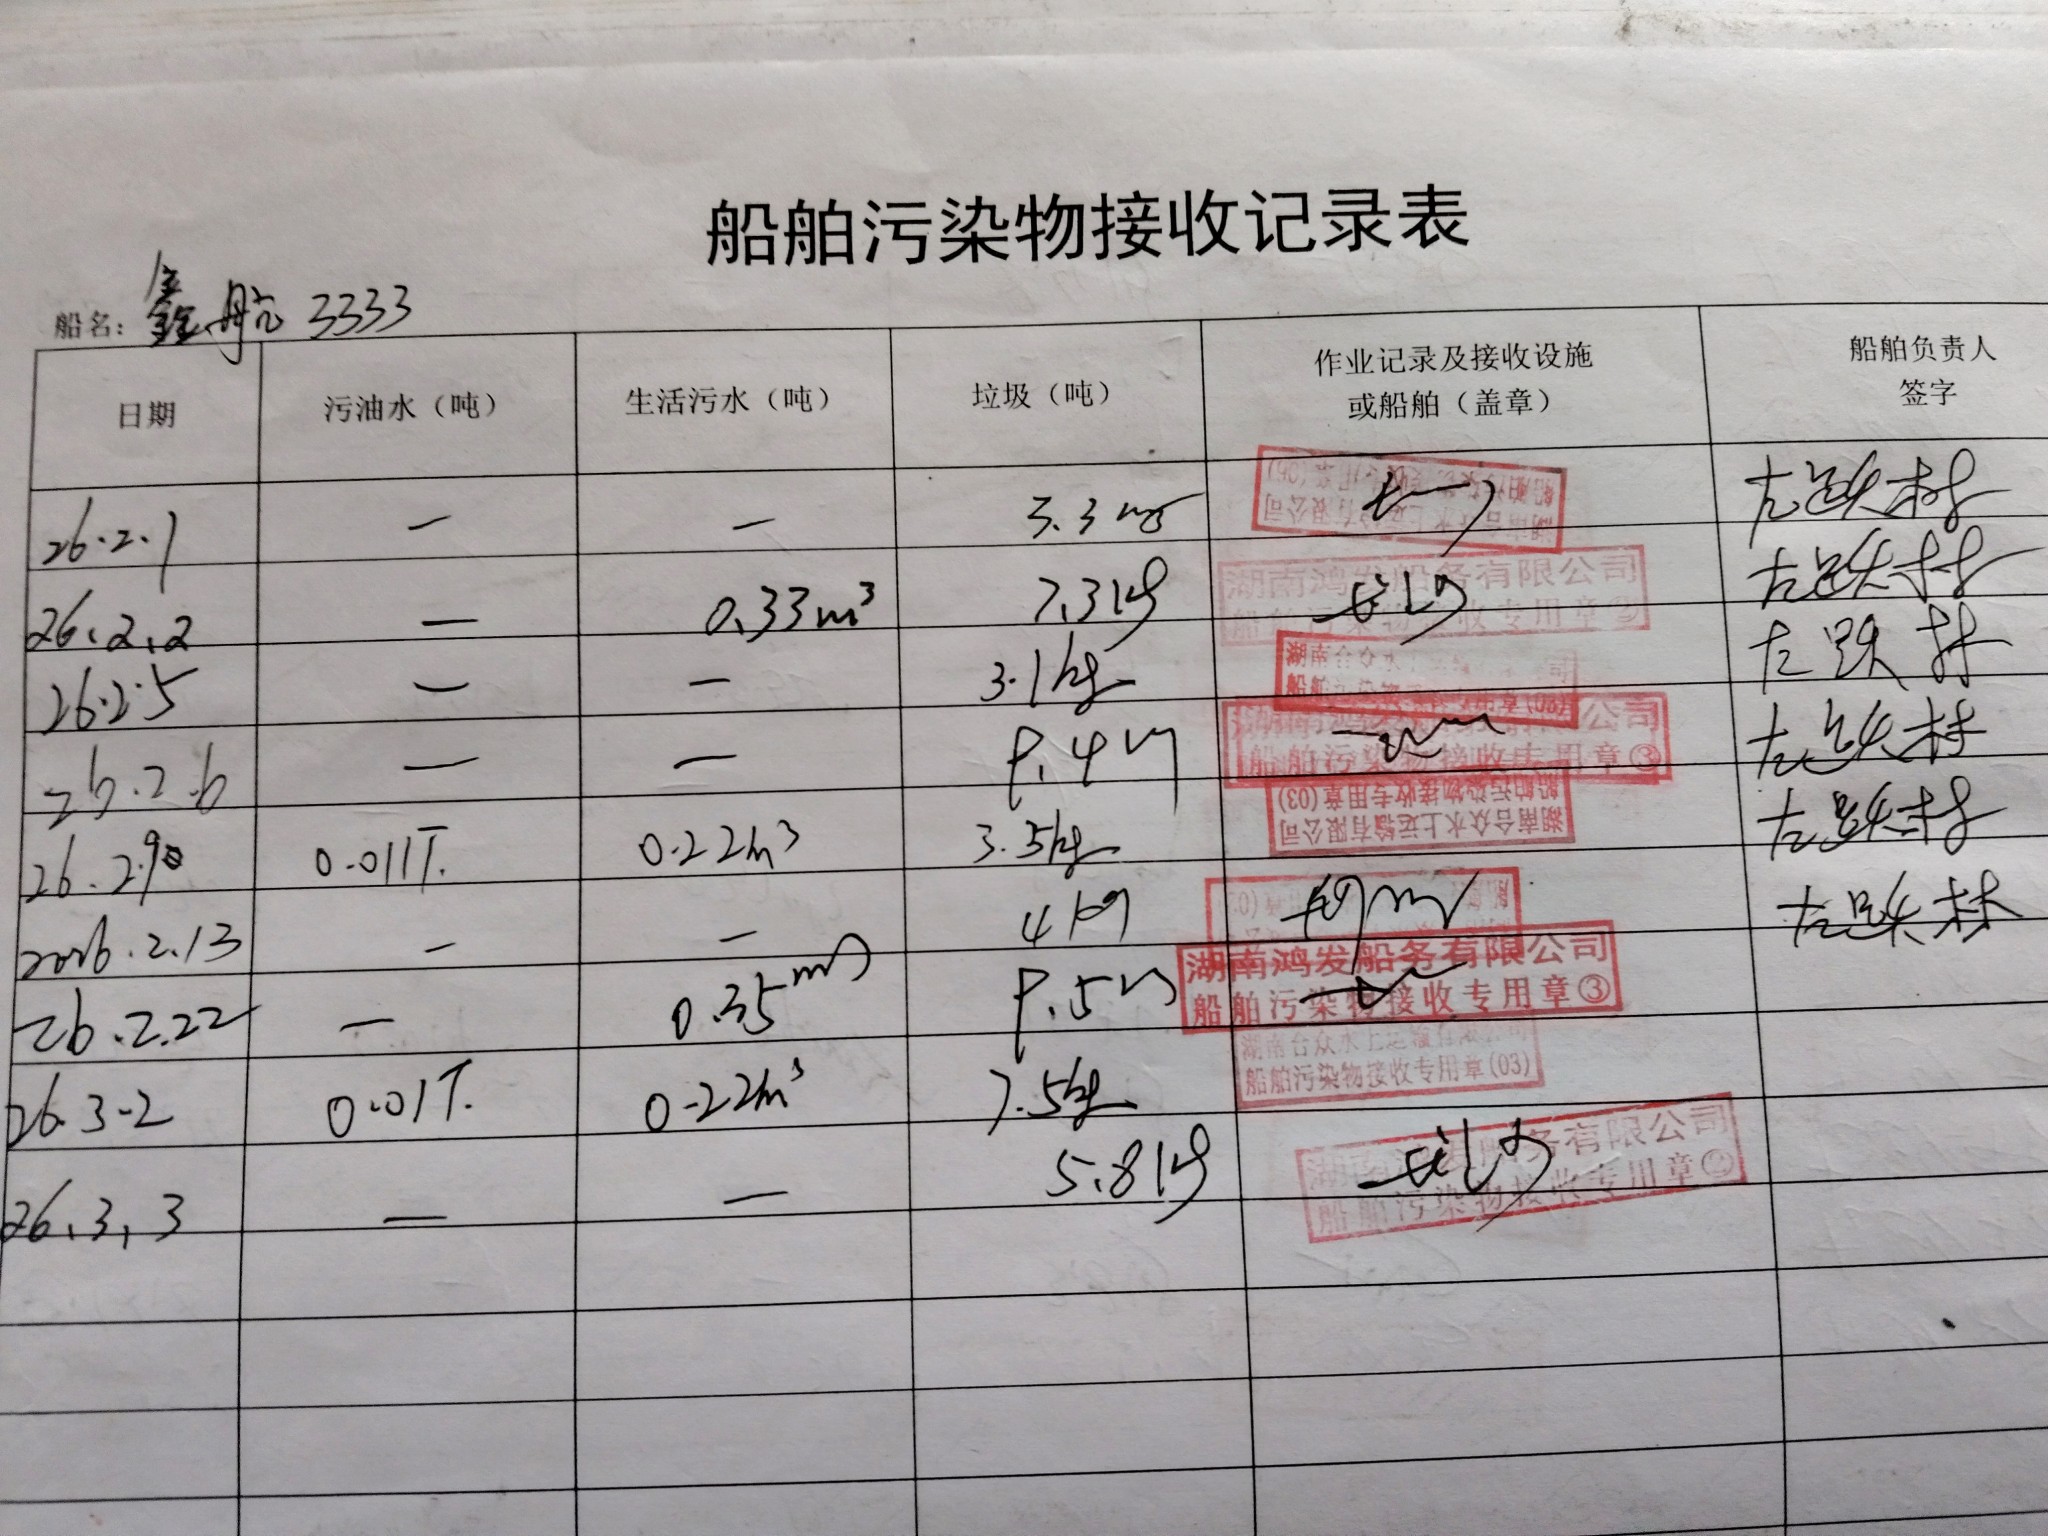 船舶污染物接收记录表
船名：鑫航3333
日期 污油水（吨） 生活污水（吨） 垃圾（吨） 作业记录及接收设施或船舶（盖章） 船舶负责人签字
26.2.1 — — 3.3kg 左跃林
26.2.2 — 0.33m³ 7.3kg 湖南鸿发船务有限公司 船舶污染物接收专用章② 左跃林
26.2.5 — — 3.1kg 湖南合众水上运输有限公司 左跃林
26.2.6 — — 船舶污染物接收专用章③ 左跃林
26.2.9 0.011T. 0.22m³ 3.5kg 湖南合众水上运输有限公司 船舶污染物接收专用章(03) 左跃林
2026.2.13 — — 4kg 左跃林
26.2.22 — 0.35 湖南鸿发船务有限公司 船舶污染物接收专用章③
26.3-2 0.01T. 0.22m³ 7.5kg 湖南合众水上运输有限公司 船舶污染物接收专用章(03)
26.3.3 — — 5.8kg 湖南鸿发船务有限公司 船舶污染物接收专用章②